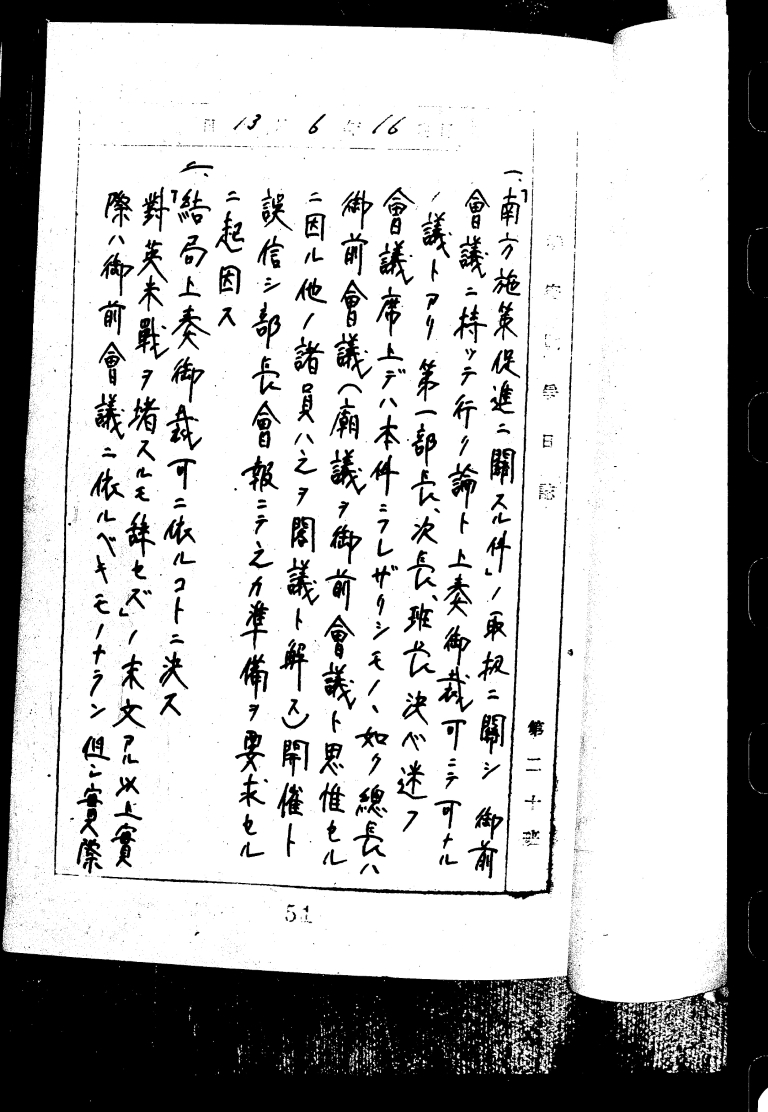 昭和16年6月13日
機密戰爭日誌
第二十班
一、「南方施策促進ニ關スル件」ノ取扱ニ關シ 御前
會議ニ持ッテ行ク論ト上奏御裁可ニテ可ナル
ノ議トアリ 第一部長、次長、班長 決ヘ迷フ
會議席上デハ本件ニフレザリシモノヽ如ク總長ハ
御前會議(廟議ヲ御前會議ト思惟セル
ニ因ル他ノ諸員ハ之ヲ閣議ト解ス)開催ト
誤信シ部長會報ニテ之カ準備ヲ要求セル
ニ起因ス
二、結局上奏御裁可ニ依ルコトニ決ス
「對英米戰ヲ堵スルモ辞セズ」ノ末文アル以上實
際ハ御前會議ニ依ルベキモノナラン 但シ實際
51